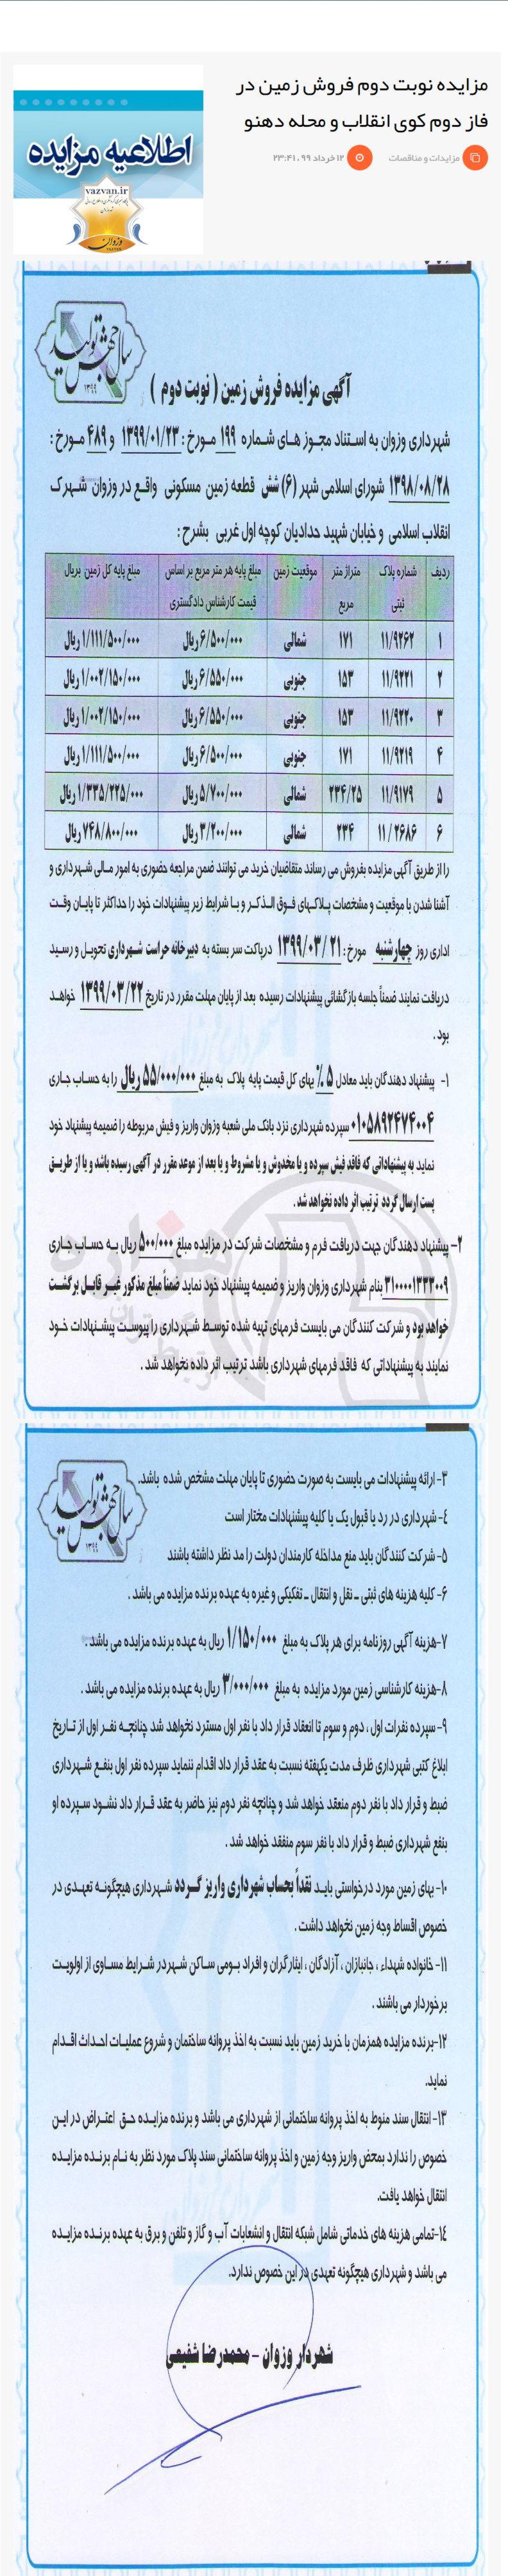 مزایده نوبت دوم فروش زمین در
فاز دوم کوی انقلاب و محله دهنو
مزایدات و مناقصات
۱۲ خرداد ۹۹، ۲۳:۴۱
اطلاعیه مزایده
vazvan.ir
وزوان
سال جهش تولید
۱۳۹۹
آگهی مزایده فروش زمین ( نوبت دوم )
شهرداری وزوان به استناد مجوز های شماره ۱۹۹ مورخ : ۱۳۹۹/۰۱/۲۳ و ۴۸۹ مورخ :
۱۳۹۸/۰۸/۲۸ شورای اسلامی شهر (۶) شش قطعه زمین مسکونی واقع در وزوان شهرک
انقلاب اسلامی و خیابان شهید حدادیان کوچه اول غربی بشرح :
ردیف شماره پلاک ثبتی متراژ متر مربع موقعیت زمین مبلغ پایه هر متر مربع بر اساس قیمت کارشناس دادگستری مبلغ پایه کل زمین بریال
۱ ۱۱/۹۲۶۲ ۱۷۱ شمالی ۶/۵۰۰/۰۰۰ ریال ۱/۱۱۱/۵۰۰/۰۰۰ ریال
۲ ۱۱/۹۲۲۱ ۱۵۳ جنوبی ۶/۵۵۰/۰۰۰ ریال ۱/۰۰۲/۱۵۰/۰۰۰ ریال
۳ ۱۱/۹۲۲۰ ۱۵۳ جنوبی ۶/۵۵۰/۰۰۰ ریال ۱/۰۰۲/۱۵۰/۰۰۰ ریال
۴ ۱۱/۹۲۱۹ ۱۷۱ جنوبی ۶/۵۰۰/۰۰۰ ریال ۱/۱۱۱/۵۰۰/۰۰۰ ریال
۵ ۱۱/۹۱۷۹ ۲۳۴/۲۵ شمالی ۵/۷۰۰/۰۰۰ ریال ۱/۳۳۵/۲۲۵/۰۰۰ ریال
۶ ۱۱/۲۶۸۶ ۲۳۴ شمالی ۳/۲۰۰/۰۰۰ ریال ۷۴۸/۸۰۰/۰۰۰ ریال
را از طریق آگهی مزایده بفروش می رساند متقاضیان خرید می توانند ضمن مراجعه حضوری به امور مالی شهرداری و
آشنا شدن با موقعیت و مشخصات پلاکهای فوق الذکر و با شرایط زیر پیشنهادات خود را حداکثر تا پایان وقت
اداری روز چهارشنبه مورخ : ۱۳۹۹/۰۳/۲۱ درپاکت سر بسته به دبیر خانه حراست شهرداری تحویل و رسید
دریافت نمایند ضمناً جلسه بازگشائی پیشنهادات رسیده بعد از پایان مهلت مقرر در تاریخ ۱۳۹۹/۰۳/۲۲ خواهد
بود .
۱- پیشنهاد دهندگان باید معادل ۵ % بهای کل قیمت پایه پلاک به مبلغ ۵۵/۰۰۰/۰۰۰ ریال را به حساب جاری
۰۱۰۵۸۹۲۴۷۴۰۰۴ سپرده شهرداری نزد بانک ملی شعبه وزوان واریز و فیش مربوطه را ضمیمه پیشنهاد خود
نماید به پیشنهاداتی که فاقد فیش سپرده و یا مخدوش و یا مشروط و یا بعد از موعد مقرر در آگهی رسیده باشد و یا از طریق
پست ارسال گردد ترتیب اثر داده نخواهد شد .
۲- پیشنهاد دهندگان جهت دریافت فرم و مشخصات شرکت در مزایده مبلغ ۵۰۰/۰۰۰ ریال به حساب جاری
۳۱۰۰۰۰۱۳۳۳۰۰۹ بنام شهرداری وزوان واریز و ضمیمه پیشنهاد خود نماید ضمناً مبلغ مذکور غیر قابل برگشت
خواهد بود و شرکت کنندگان می بایست فرمهای تهیه شده توسط شهرداری را پیوست پیشنهادات خود
نمایند به پیشنهاداتی که فاقد فرمهای شهرداری باشد ترتیب اثر داده نخواهد شد .
سال جهش تولید
۱۳۹۹
۳- ارائه پیشنهادات می بایست به صورت حضوری تا پایان مهلت مشخص شده باشد.
۴- شهرداری در رد یا قبول یک یا کلیه پیشنهادات مختار است
۵- شرکت کنندگان باید منع مداخله کارمندان دولت را مد نظر داشته باشند
۶- کلیه هزینه های ثبتی – نقل و انتقال – تفکیکی و غیره به عهده برنده مزایده می باشد .
۷-هزینه آگهی روزنامه برای هر پلاک به مبلغ ۱/۱۵۰/۰۰۰ ریال به عهده برنده مزایده می باشد .
۸-هزینه کارشناسی زمین مورد مزایده به مبلغ ۳/۰۰۰/۰۰۰ ریال به عهده برنده مزایده می باشد .
۹- سپرده نفرات اول ، دوم و سوم تا انعقاد قرار داد با نفر اول مسترد نخواهد شد چنانچه نفر اول از تاریخ
ابلاغ کتبی شهرداری ظرف مدت یکهفته نسبت به عقد قرار داد اقدام ننماید سپرده نفر اول بنفع شهرداری
ضبط و قرار داد با نفر دوم منعقد خواهد شد و چنانچه نفر دوم نیز حاضر به عقد قرار داد نشود سپرده او
بنفع شهرداری ضبط و قرار داد با نفر سوم منفقد خواهد شد .
۱۰- بهای زمین مورد درخواستی باید نقداً بحساب شهرداری واریز گردد شهرداری هیچگونه تعهدی در
خصوص اقساط وجه زمین نخواهد داشت .
۱۱- خانواده شهداء ، جانبازان ، آزادگان ، ایثارگران و افراد بومی ساکن شهردر شرایط مساوی از اولویت
برخوردار می باشند .
۱۲-برنده مزایده همزمان با خرید زمین باید نسبت به اخذ پروانه ساختمان و شروع عملیات احداث اقدام
نماید.
۱۳- انتقال سند منوط به اخذ پروانه ساختمانی از شهرداری می باشد و برنده مزایده حق اعتراض در این
خصوص را ندارد بمحض واریز وجه زمین و اخذ پروانه ساختمانی سند پلاک مورد نظر به نام برنده مزایده
انتقال خواهد یافت.
۱۴-تمامی هزینه های خدماتی شامل شبکه انتقال و انشعابات آب و گاز و تلفن و برق به عهده برنده مزایده
می باشد و شهرداری هیچگونه تعهدی در این خصوص ندارد.
شهردار وزوان – محمدرضا شفیعی